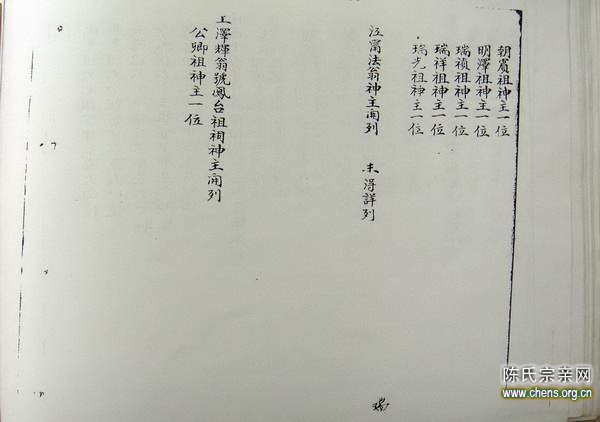 朝賓祖神主一位
明澤祖神主一位
瑞禎祖神主一位
瑞祥祖神主一位
瑞光祖神主一位
江甯法翁神主開列 未得詳列
上澤輝翁號鳳台祖祠神主開列
公卿祖神主一位
陈氏宗亲网
www.chens.org.cn